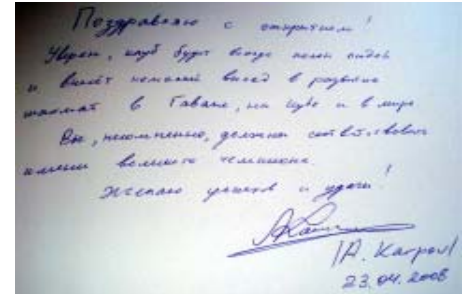 Поздравляю с открытием!
Уверен, клуб будет всегда полон людей
и внесёт немалый вклад в развитие
шахмат в Гаване, на Кубе и в мире.
Вы, несомненно, должны соответствовать
имени великого чемпиона.
Желаю успехов и удачи!
/A. Karpov/
23.04.2008